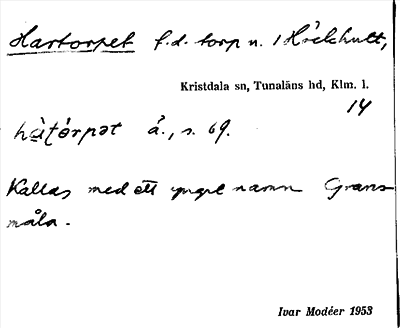 Hartorpet f.d. torp u. 1 Höckhult,
Kristdala sn, Tunaläns hd, Klm. l.
14
hàt́órpət å., s. 69.
Kallas med ett yngre namn Grans-
måla.
Ivar Modéer 1953